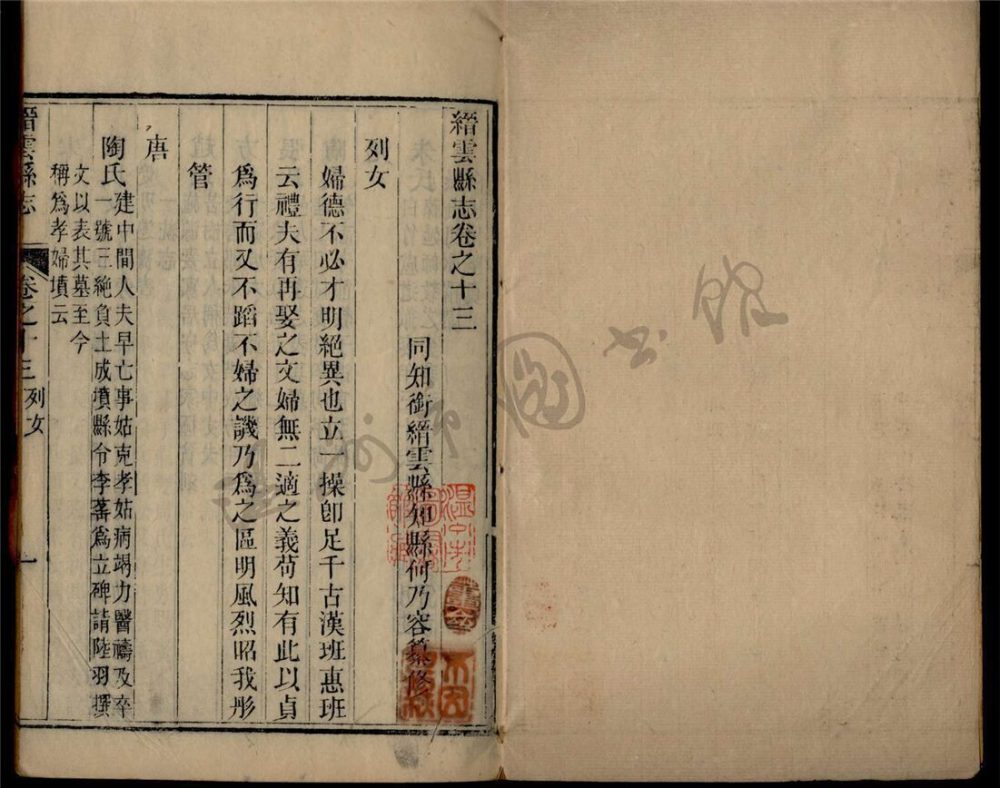 縉雲縣志卷之十三
同知銜縉雲縣知縣何乃容纂修
列女
婦德不必才明絕異也立一操卽足千古漢班惠班
云禮夫有再娶之文婦無二適之義苟知有此以貞
爲行而又不蹈不婦之譏乃爲之區明風烈昭我彤
管
唐
陶氏
建中間人夫早亡事姑克孝姑病竭力醫禱及卒
一號三絕負土成墳縣令李蕃爲立碑請陸羽撰
文以表其墓至今
稱爲孝婦墳云
縉雲縣志
卷之十三
列女
一
圖書館